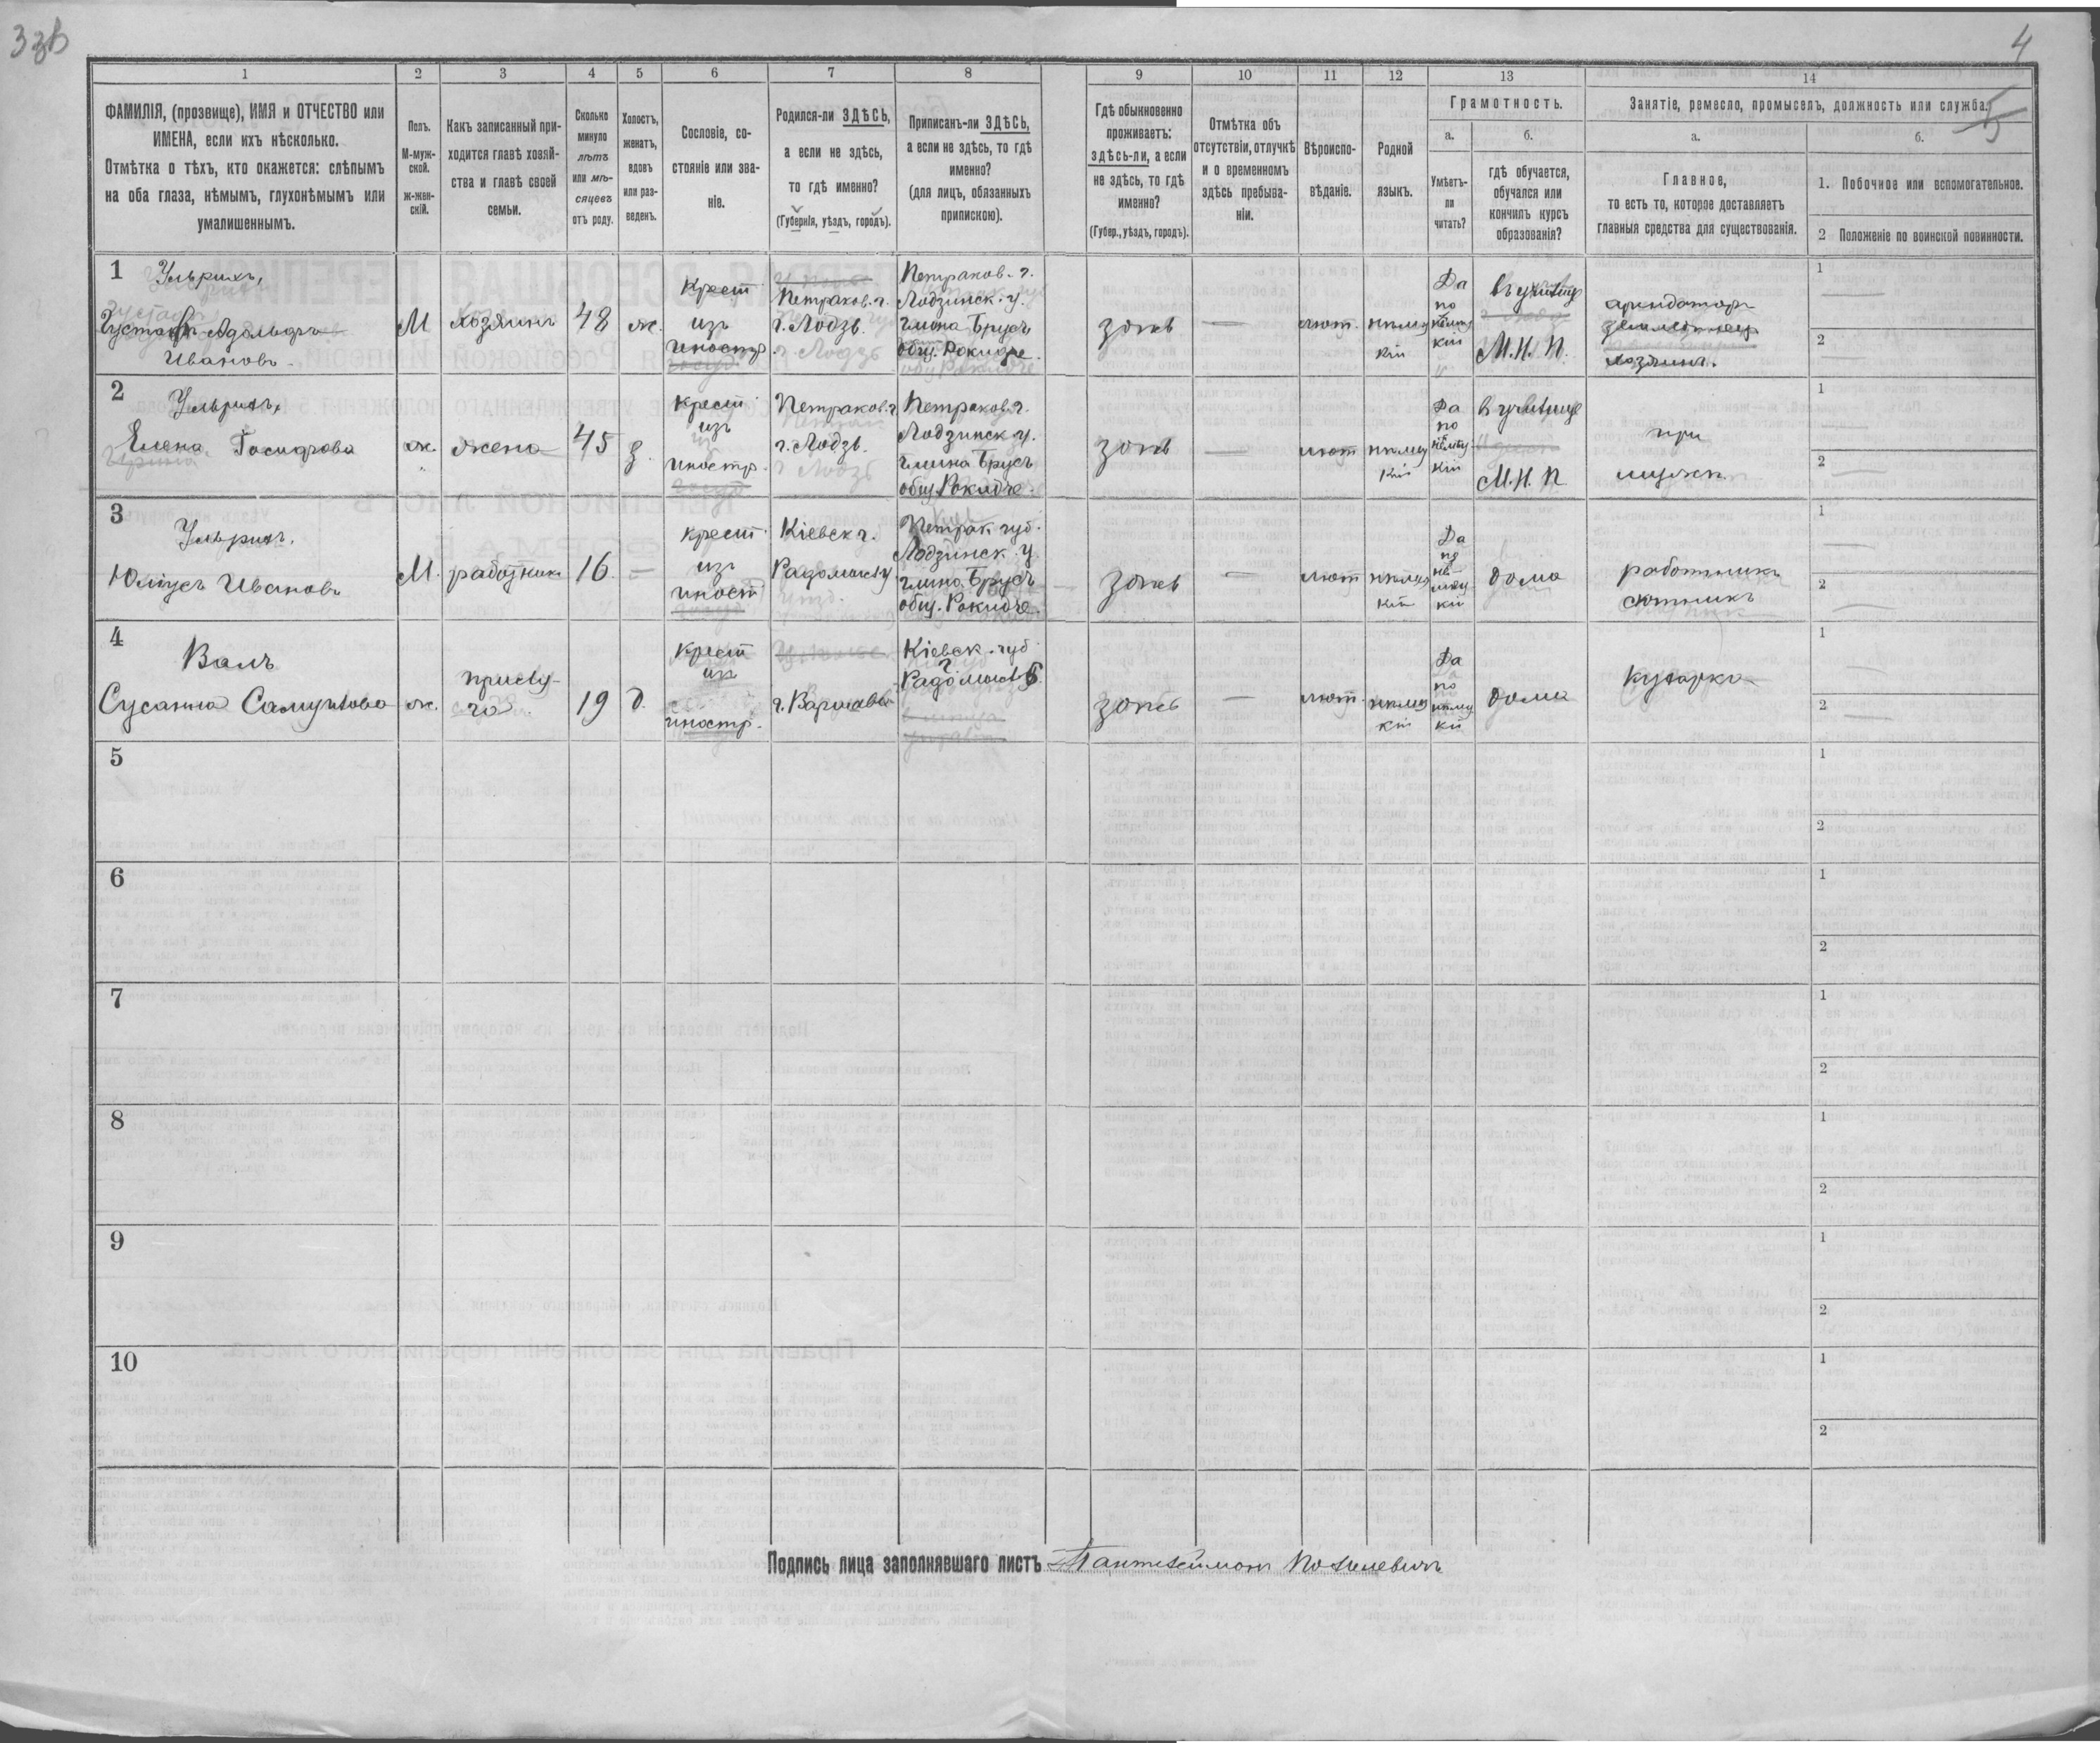 4
1
2
3
4
5
6
7
8
9
10
11
12
13
14
ФАМИЛІЯ, (прозвище), ИМЯ и ОТЧЕСТВО или
ИМЕНА, если ихъ нѣсколько.
Отмѣтка о тѣхъ, кто окажется: слѣпымъ
на оба глаза, нѣмымъ, глухонѣмымъ или
умалишеннымъ.
Полъ.
М-муж-
ской.
ж-жен-
скій.
Какъ записанный при-
ходится главѣ хозяй-
ства и главѣ своей
семьи.
Сколько
минуло
лѣтъ
или мѣ-
сяцевъ
отъ роду.
Холостъ,
женатъ,
вдовъ
или раз-
веденъ.
Сословіе, со-
стояніе или зва-
ніе.
Родился-ли ЗДѢСЬ,
а если не здѣсь,
то гдѣ именно?
(Губернія, уѣздъ, городъ).
Приписанъ-ли ЗДѢСЬ,
а если не здѣсь, то гдѣ
именно?
(для лицъ, обязанныхъ
припискою).
Гдѣ обыкновенно
проживаетъ:
здѣсь-ли, а если
не здѣсь, то гдѣ
именно?
(Губер., уѣздъ, городъ).
Отмѣтка объ
отсутствіи, отлучкѣ
и о временномъ
здѣсь пребыва-
ніи.
Вѣроиспо-
вѣданіе.
Родной
языкъ.
Грамотность.
а.
Умѣетъ-
ли
читать?
б.
гдѣ обучается,
обучался или
кончилъ курсъ
образованія?
Занятіе, ремесло, промыселъ, должность или служба.
а.
Главное,
то есть то, которое доставляетъ
главныя средства для существованія.
б.
1. Побочное или вспомогательное.
2 Положеніе по воинской повинности.
1
Ульрихъ,
Густавъ Адольфъ
Ивановъ
М
хозяинъ
48
ж.
крест
изъ
иностр.
Петраков. г.
г. Лодзь.
Петраков. г.
Лодзинск. у.
гмина Брусъ
общ. Рокидче.
лют.
нѣмец
кій
Да
по
нѣмец
кій
М. Н. П.
арендаторъ
хозяинъ.
1
2
2
Ульрихъ,
Елена
ж.
жена
45
з.
крест
изъ
иностр.
Петраков. г.
г. Лодзь.
Петраков. г.
Лодзинск у.
гмина Брусъ
общ. Рокидче.
лют
нѣмец
кій
Да
по
нѣмец
кій
в училище
М. Н. П
при
мужѣ
1
2
3
Ульрихъ.
Юліусъ Ивановъ
М.
работник
16
—
крест
изъ
иност
Кіевск г.
Радомысл у
Петрак губ.
Лодзинск. у
гмина Брусъ
общ. Рокидче.
лют
нѣмец
кій
Да
по
нѣ-
мец-
кій
дома
работникъ
скотникъ
1
2
4
Валь
Сусанна Самуилова
ж.
прислу-
га
19
д.
крест
из
иностр.
г. Варшавы
Кіевск. губ
лют.
нѣмец
кій
Да
по
нѣмец
кій
дома
кухарка
1
2
5
1
2
6
1
2
7
1
2
8
1
2
9
1
2
10
1
2
Подпись лица заполнявшаго листъ Пантелеймонъ